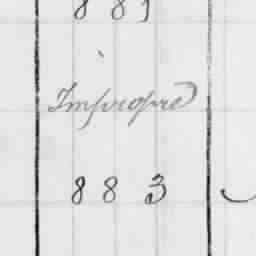 Impropre
883